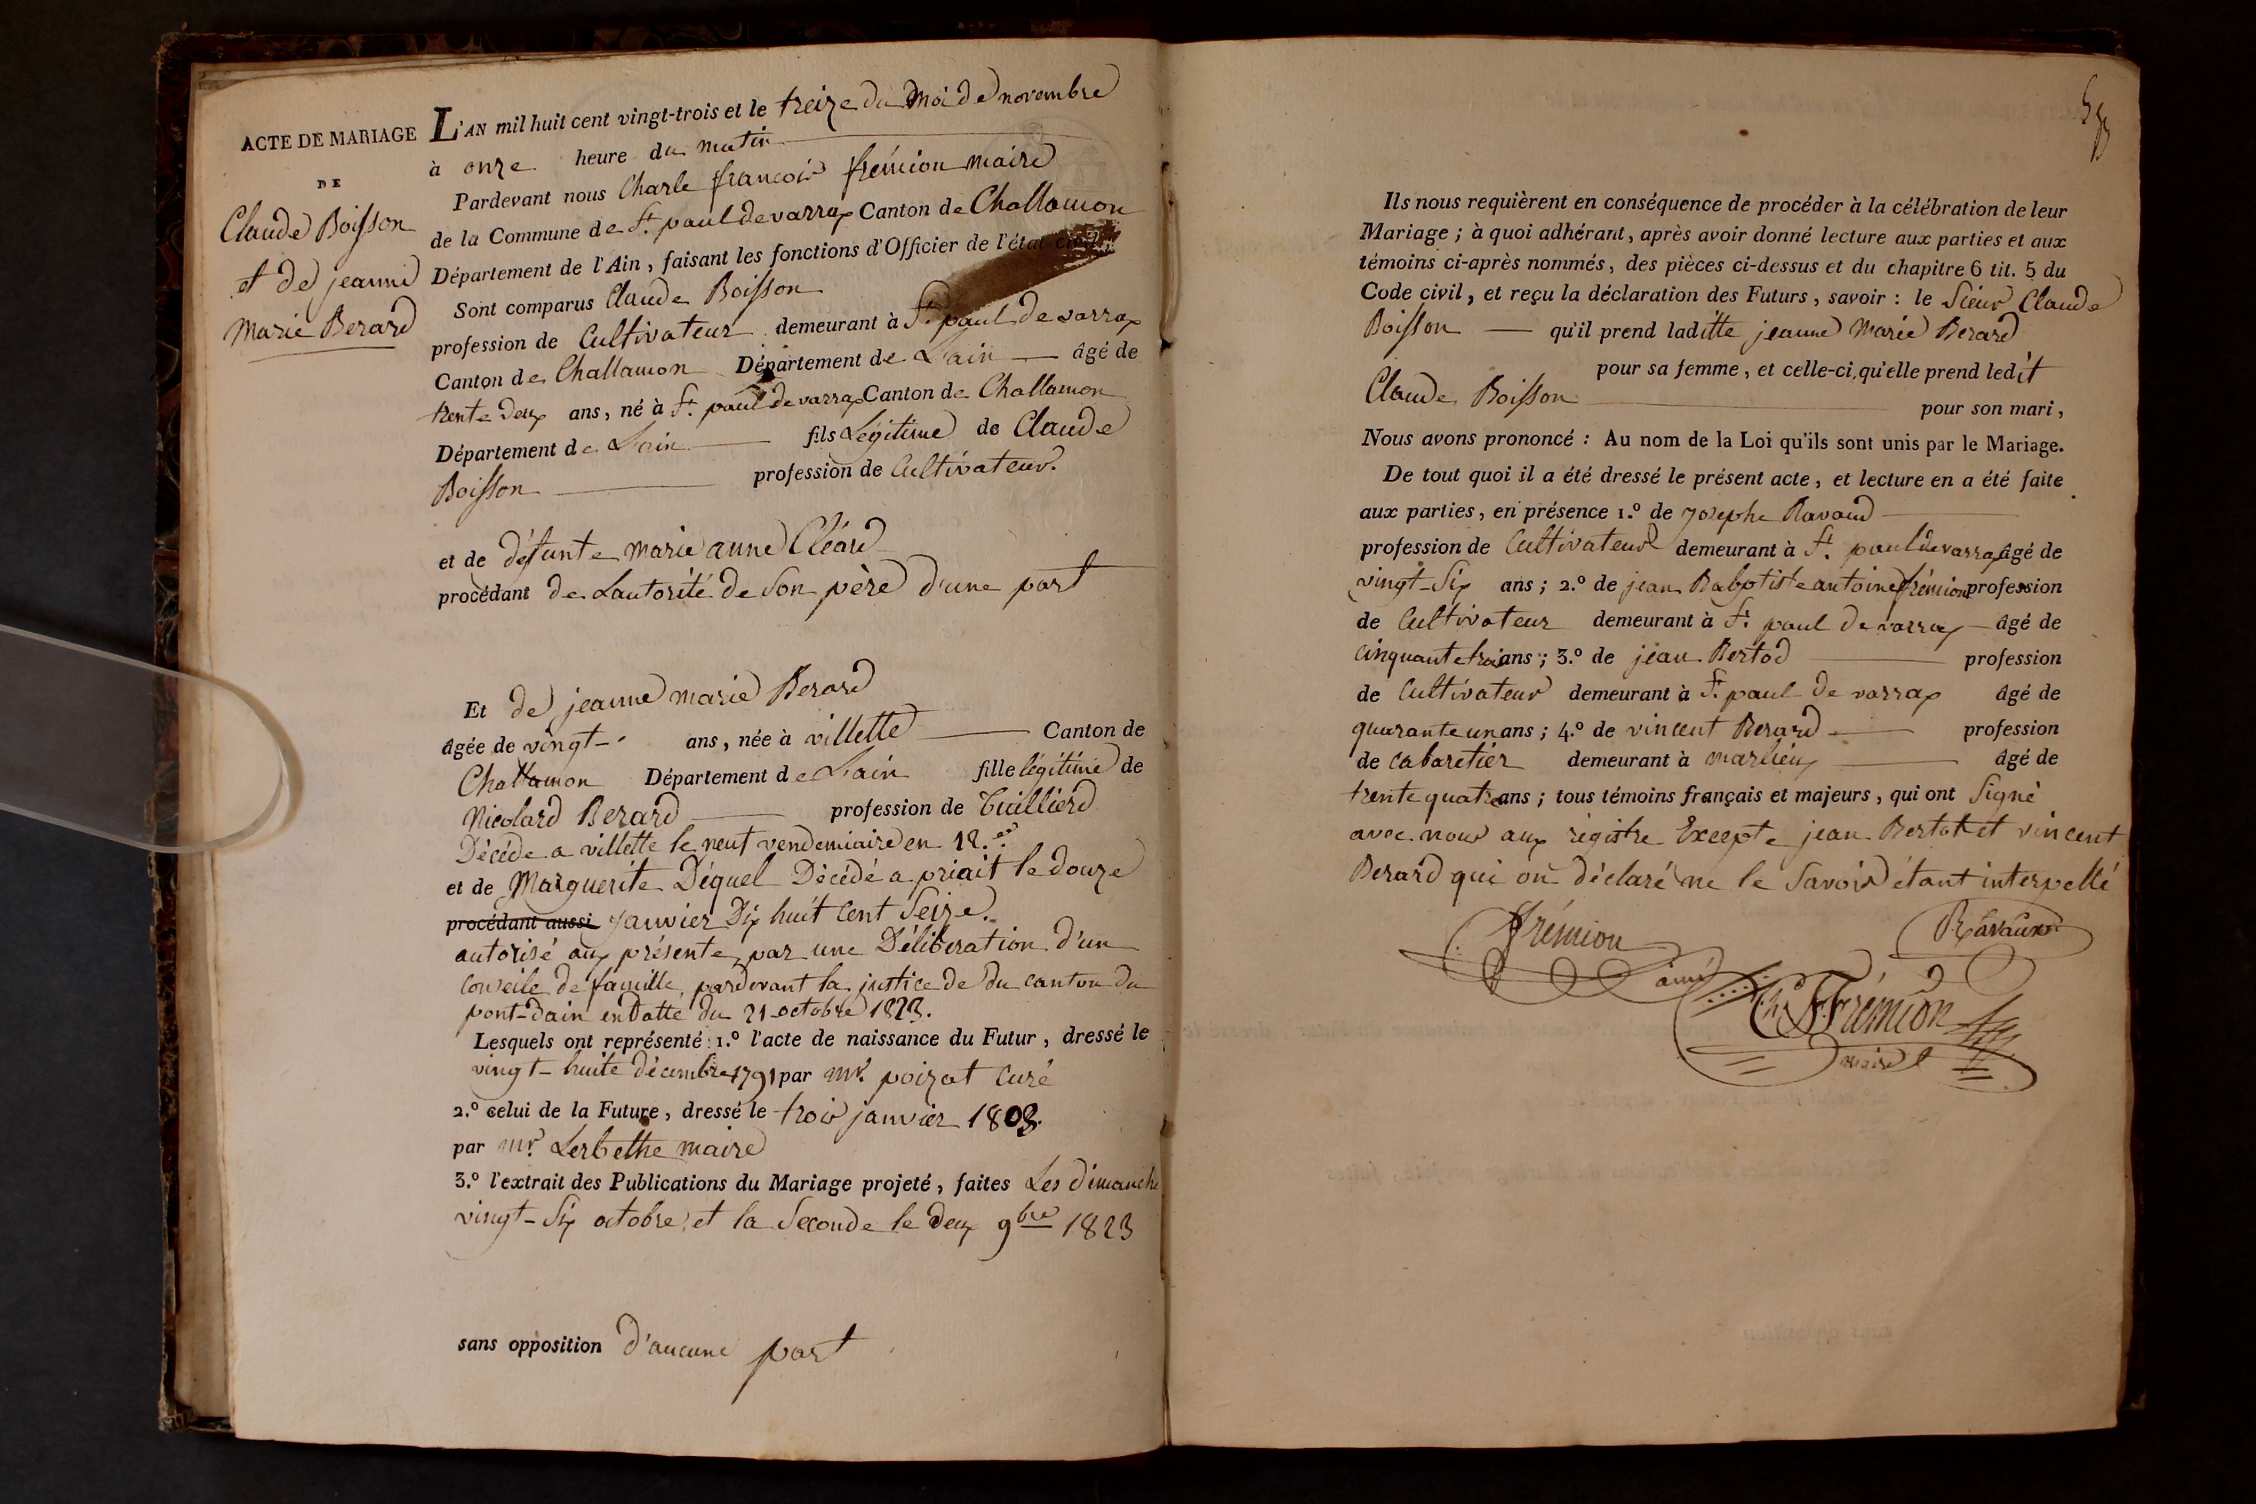 ACTE DE MARIAGE
DE
Claude Boisson
et de jeanne
Marie Berard
L'AN mil huit cent vingt-trois et le treize du Moi de novembre
à onze heure du matin
Pardevant nous Charle françois frémion maire
de la Commune de St. paul de varrax Canton de Challamon
Département de l'Ain, faisant les fonctions d'Officier de l'état civil
Sont comparus Claude Boisson
profession de Cultivateur demeurant à St. paul de varrax
Canton de Challamon Département de L'ain âgé de
trente deux ans, né à St. paul de varrax Canton de Challamon
Département de L'ain fils Légitime de Claude
Boisson profession de Cultivateur.
et de défunte marie anne Cléard
procédant de Lautorité de Son père d'une part
Et de jeanne marie Berard
âgée de vingt ans, née à villette Canton de
Challamon Département de L'ain fille légitime de
Nicolard Berard profession de Tuillierd
Décéde a villette le neuf vendemiaire en 12.
et de Marguerite Déguel Décédé a priait le douze
procédant aussi janvier Dix huit Cent Seize.
autorisé aux présente par une Déliberation d'un
Conseile de famille pardevant la justice de du canton du
pont-dain en Datte du 21 octobre 1823.
Lesquels ont représenté 1.º l'acte de naissance du Futur, dressé le
vingt-huite décembre 1791 par mr. poizat Curé
2.º celui de la Future, dressé le troix janvier 1803.
par mr. Lerbethe maire
3.º l'extrait des Publications du Mariage projeté, faites Les dimanche
vingt-Six octobre et la Seconde le deux 9bre 1823
sans opposition d'aucune part
Ils nous requièrent en conséquence de procéder à la célébration de leur
Mariage; à quoi adhérant, après avoir donné lecture aux parties et aux
témoins ci-après nommés, des pièces ci-dessus et du chapitre 6 tit. 5 du
Code civil, et reçu la déclaration des Futurs, savoir : le Sieur Claude
Boisson qu'il prend laditte jeanne Marie Berard
pour sa femme, et celle-ci, qu'elle prend ledit
Claude Boisson
pour son mari,
Nous avons prononcé : Au nom de la Loi qu'ils sont unis par le Mariage.
De tout quoi il a été dressé le présent acte, et lecture en a été faite
aux parties, en présence 1.º de Josephe Ravaud
profession de Cultivateur demeurant à St. paul de varrax âgé de
vingt-Six ans; 2.º de jean Babptiste antoine frémion profession
de Cultivateur demeurant à St. paul de varrax âgé de
cinquante trois ans; 3.º de jean Bertod profession
de Cultivateur demeurant à St. paul de varrax âgé de
quarante un ans; 4.º de vincent Berard profession
de cabaretier demeurant à marlieux âgé de
trente quatre ans; tous témoins français et majeurs, qui ont Signé
avec nous aux régistre Excepte jean Bertot et vincent
Berard qui on déclaré ne le Savoir étant interpellé
frémion
Ravaux
ainé
Ch. F. Frémion
maire